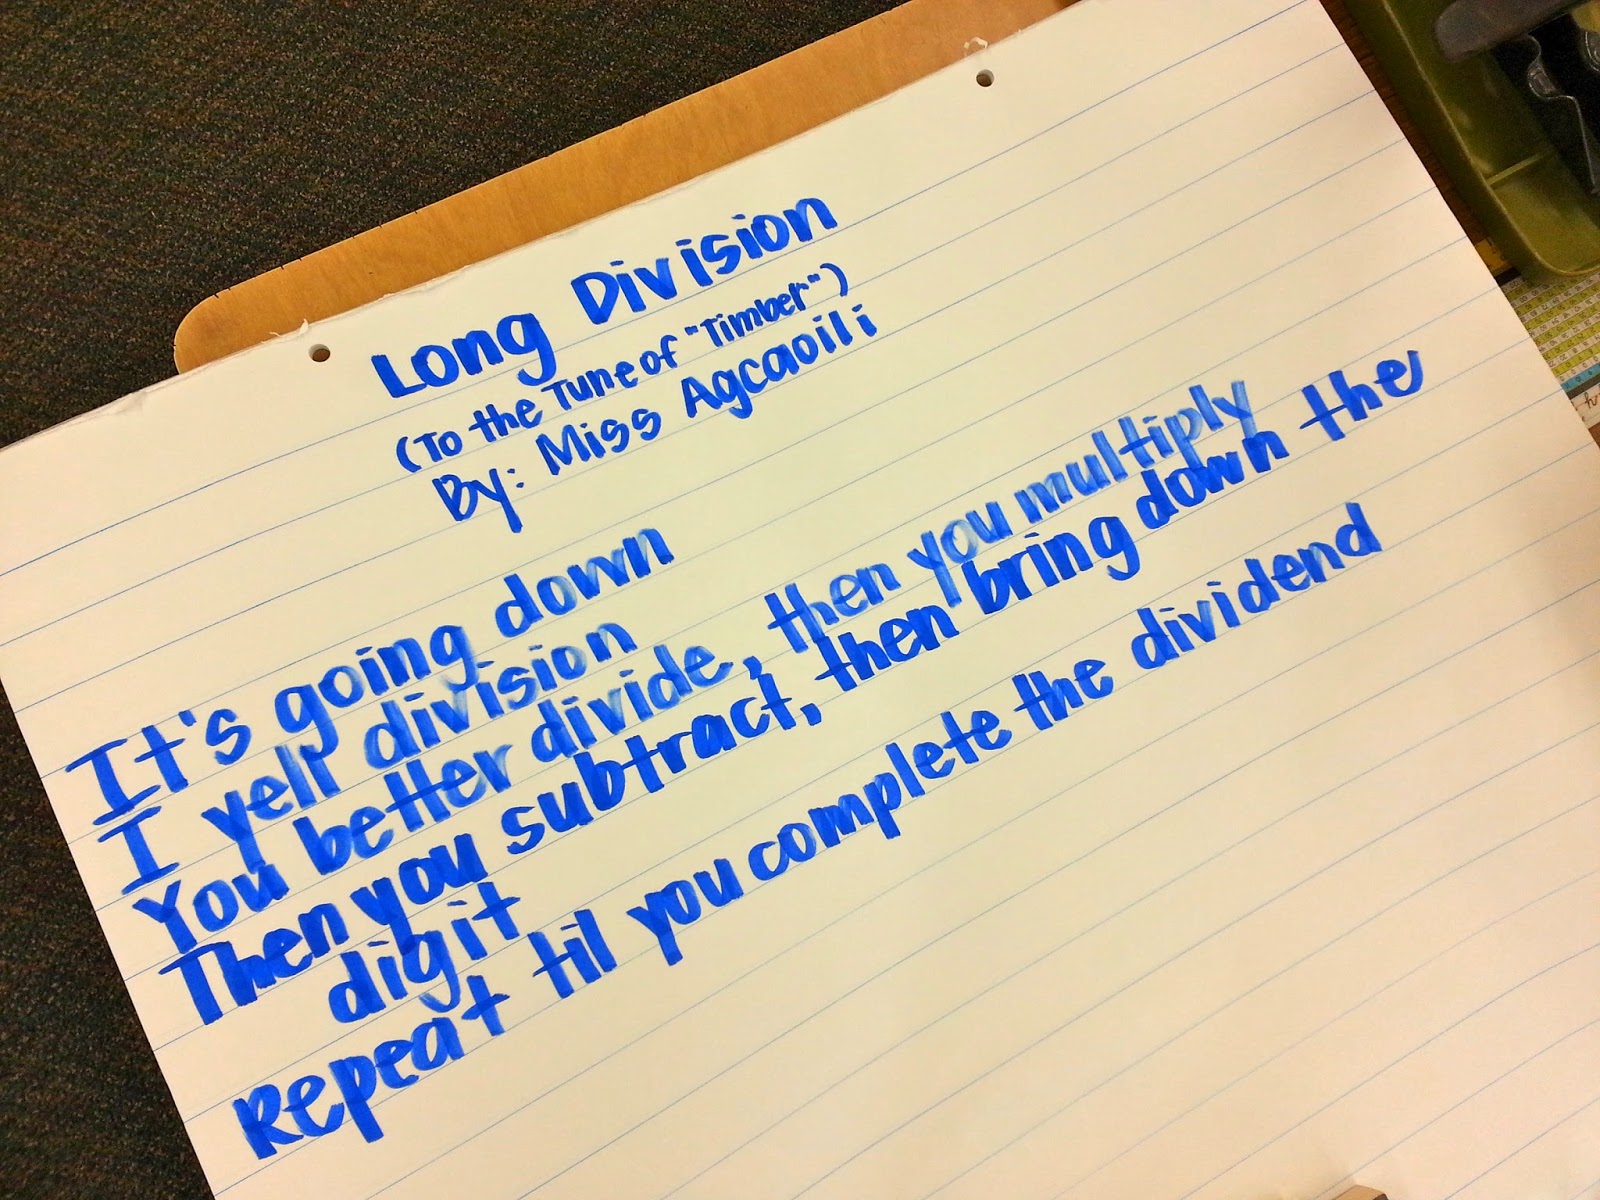 Long Division
(To the Tune of "Timber")
By: Miss Agcaoili
It's going down
I yell division
You better divide, then you multiply
Then you subtract, then bring down the
digit
Repeat til you complete the dividend